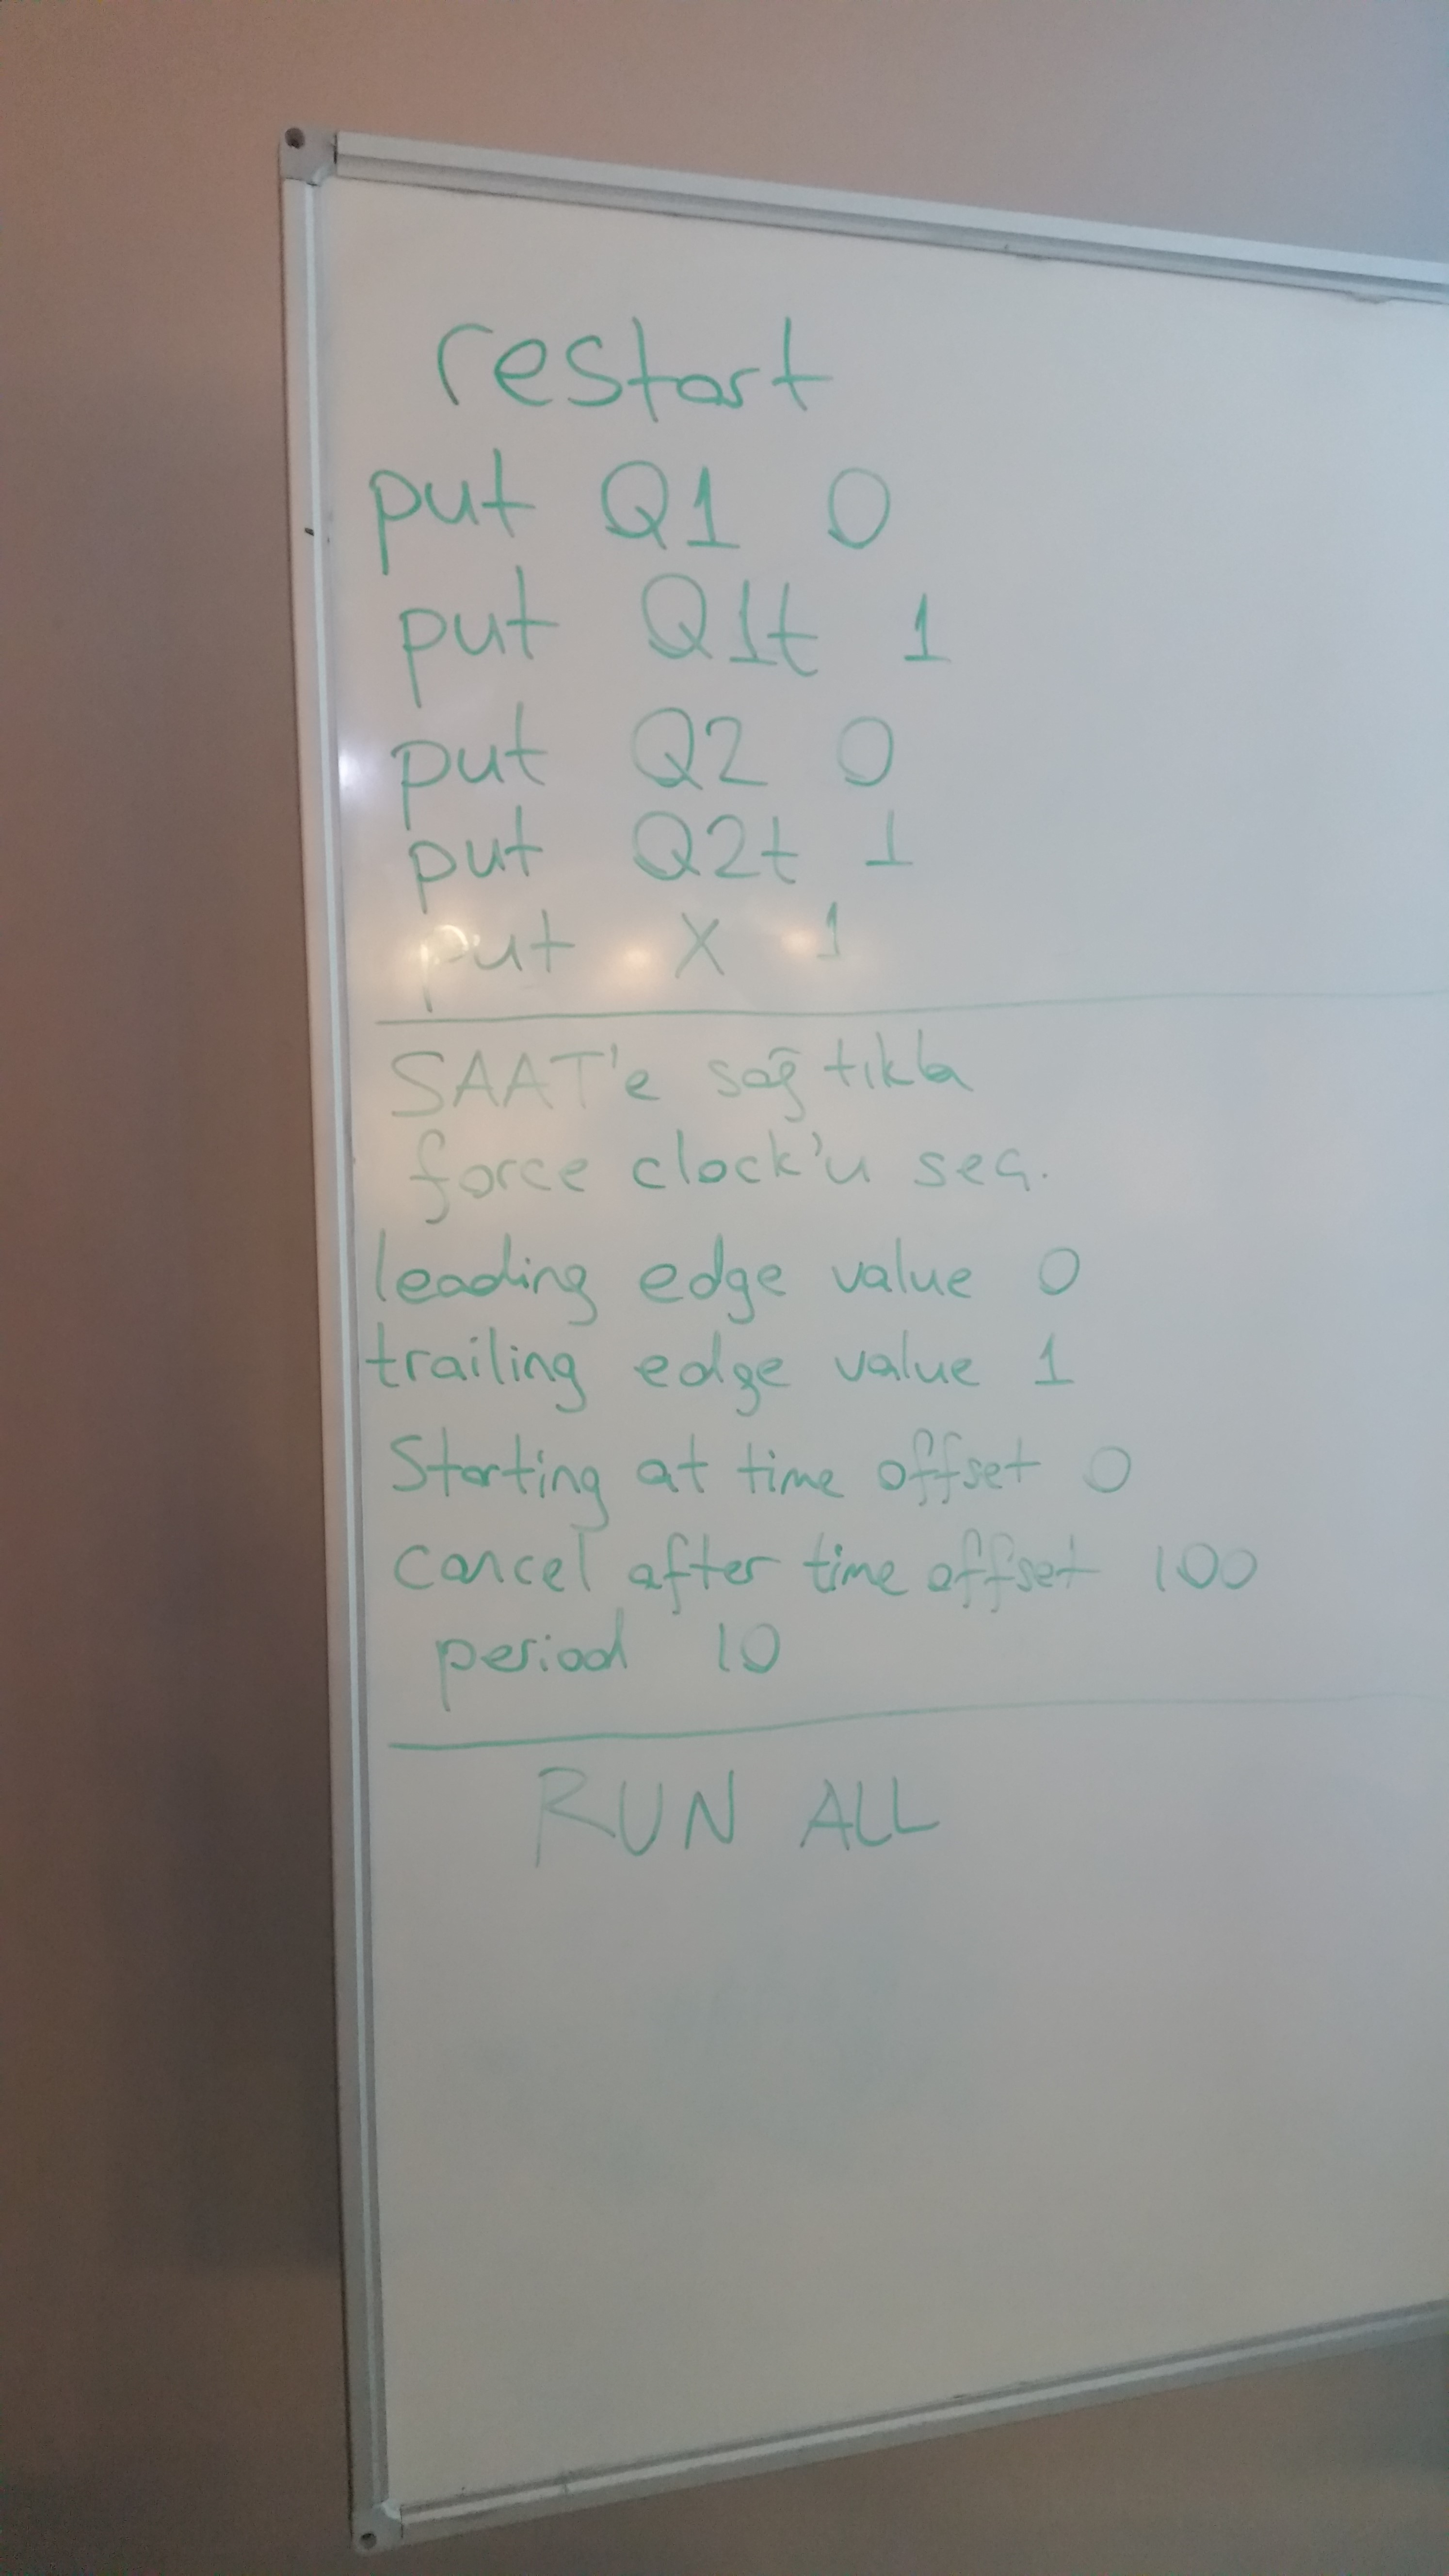 restart
put Q1 0
put Q1t 1
put Q2 0
put Q2t 1
put X 1
SAAT'e sağ tıkla
force clock'u seç.
leading edge value 0
trailing edge value 1
Starting at time offset 0
cancel after time offset 100
period 10
RUN ALL